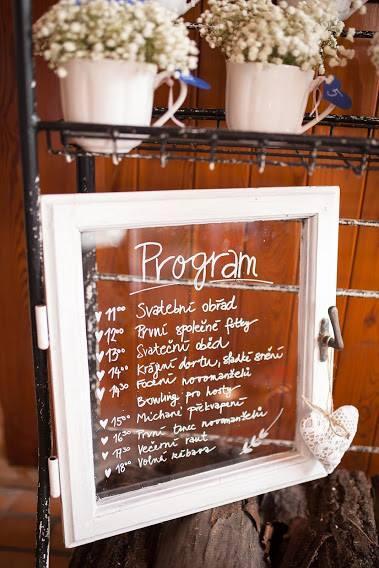 Program
11⁰⁰ Svatební obřad
12⁰⁰ První společné fotky
13⁰⁰ Svateční oběd
14⁰⁰ Krájení dortu, sladké snění
14³⁰ Focení novomanželů
Bowling pro hosty
15⁰⁰ Míchané překvapení
16³⁰ První tanec novomanželů
17³⁰ Večerní raut
18⁰⁰ Volná zábava
5